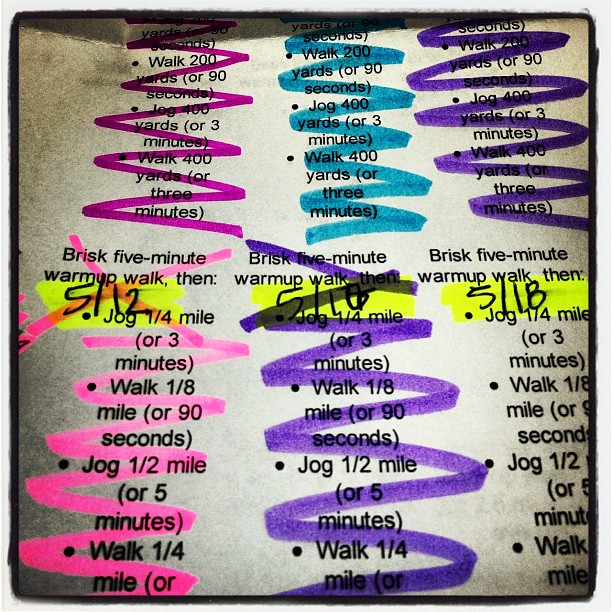 Jog 400
yards (or 3
seconds)
• Walk 200
yards (or 90
seconds)
• Jog 400
yards (or 3
minutes)
• Walk 400
yards (or
three
minutes)
yards (or 90
seconds)
• Walk 200
yards (or 90
seconds)
• Jog 400
yards (or 3
minutes)
• Walk 400
yards (or
three
minutes)
seconds)
• Walk 200
yards (or 90
seconds)
• Jog 400
yards (or 3
minutes)
• Walk 400
yards (or
three
minutes)
Brisk five-minute
warmup walk, then:
5/12
• Jog 1/4 mile
(or 3
minutes)
• Walk 1/8
mile (or 90
seconds)
• Jog 1/2 mile
(or 5
minutes)
• Walk 1/4
mile (or
Brisk five-minute
warmup walk, then:
5/16
• Jog 1/4 mile
(or 3
minutes)
• Walk 1/8
mile (or 90
seconds)
• Jog 1/2 mile
(or 5
minutes)
• Walk 1/4
mile (or
Brisk five-minute
warmup walk, then:
5/18
• Jog 1/4 mile
(or 3
minutes)
• Walk 1/8
mile (or 9
seconds
• Jog 1/2
(or 5
minut
• Walk
mile